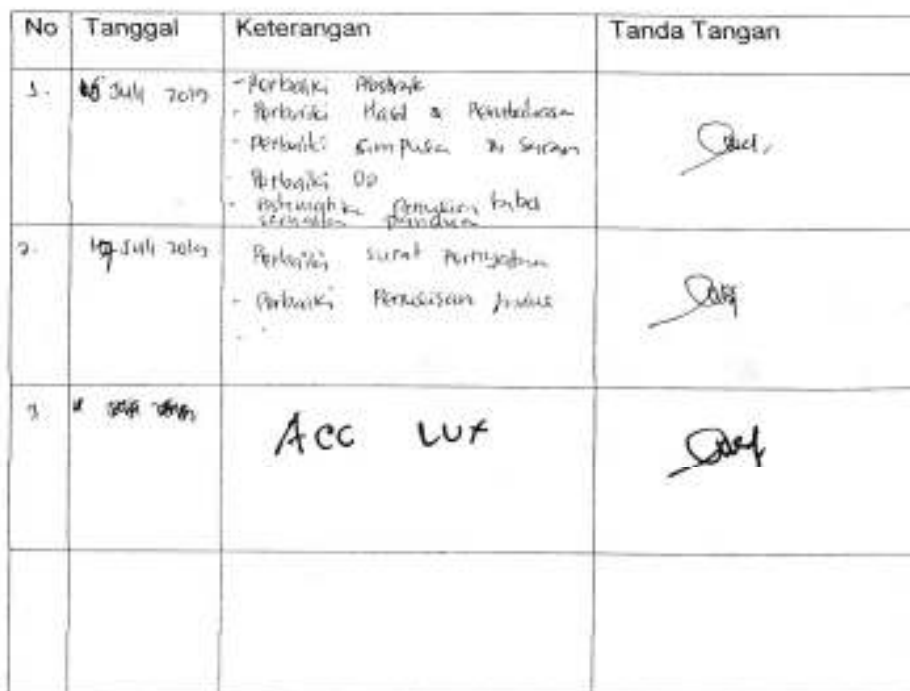 No Tanggal Keterangan Tanda Tangan
1. Juli 2019 - Perbaiki Abstrak
- Perbaiki Hasil & Pembahasan
- Perbaiki simpulan & saran
- Perbaiki
tabel
panduan
2. 17 Juli 2019 Perbaiki surat Pernyataan
- Perbaiki Penulisan
3
ACC LUX